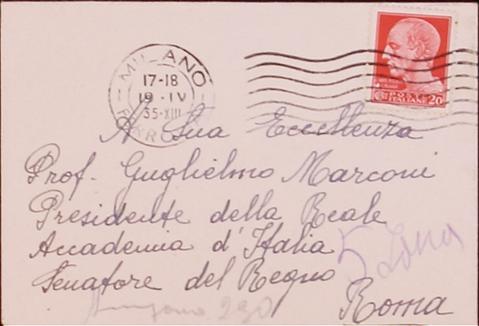 MILANO
17-18
19·IV
35·XIII
POSTE
ITALIANE 20
A Sua Eccellenza
Prof. Guglielmo Marconi
Presidente della Reale
Accademia d'Italia
Senatore del Regno
5 Zona
Roma